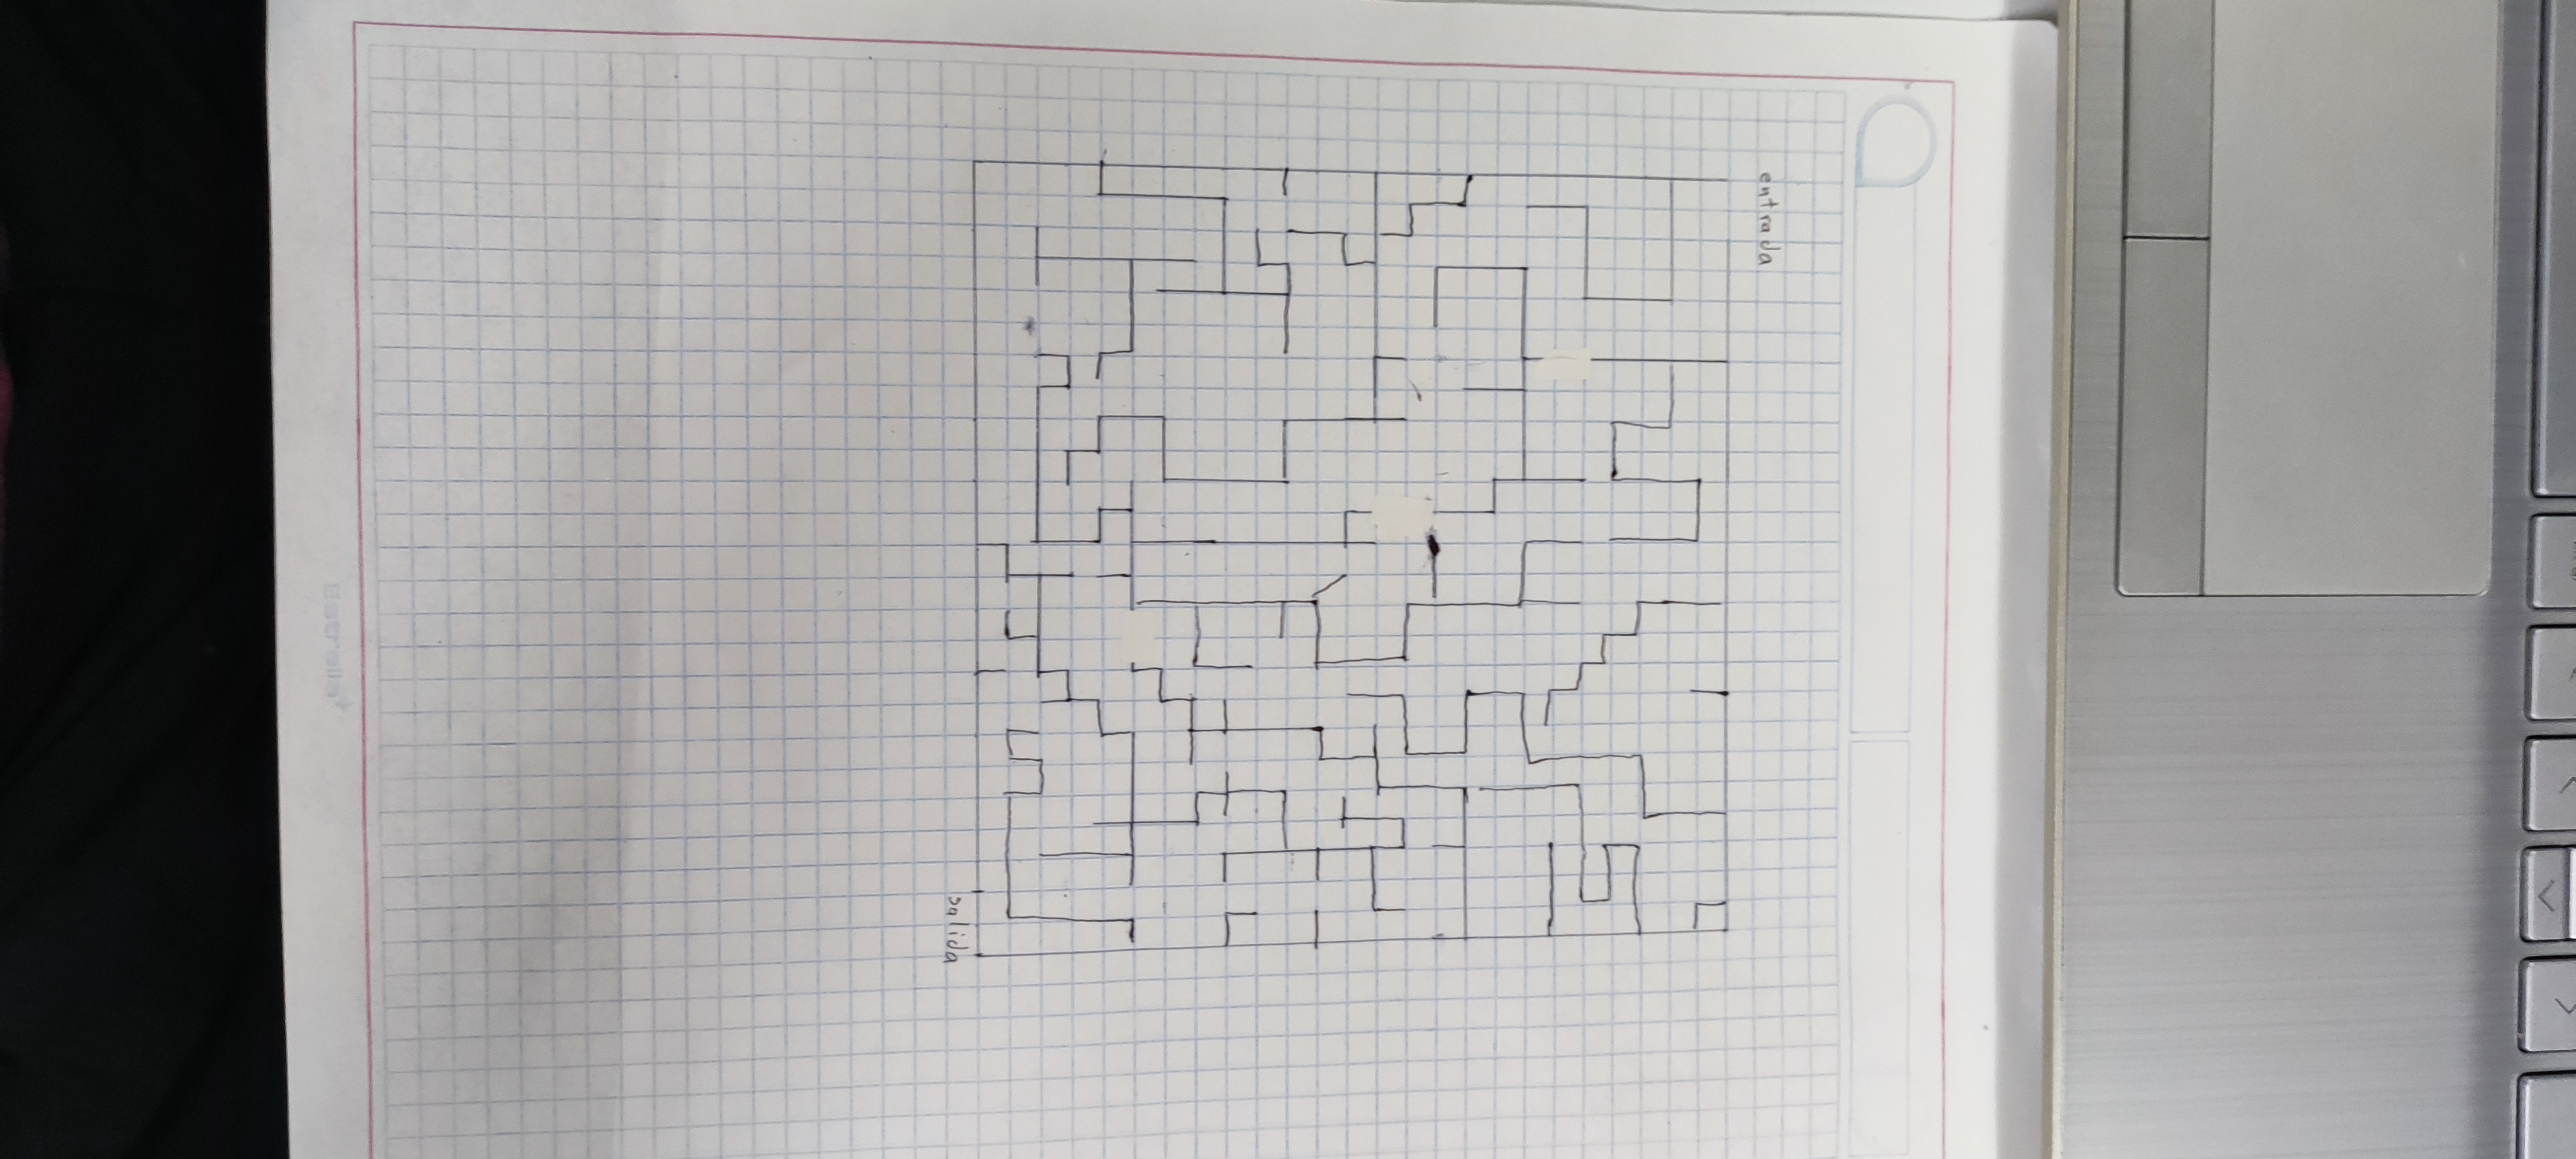 entrada
salida
Estrella